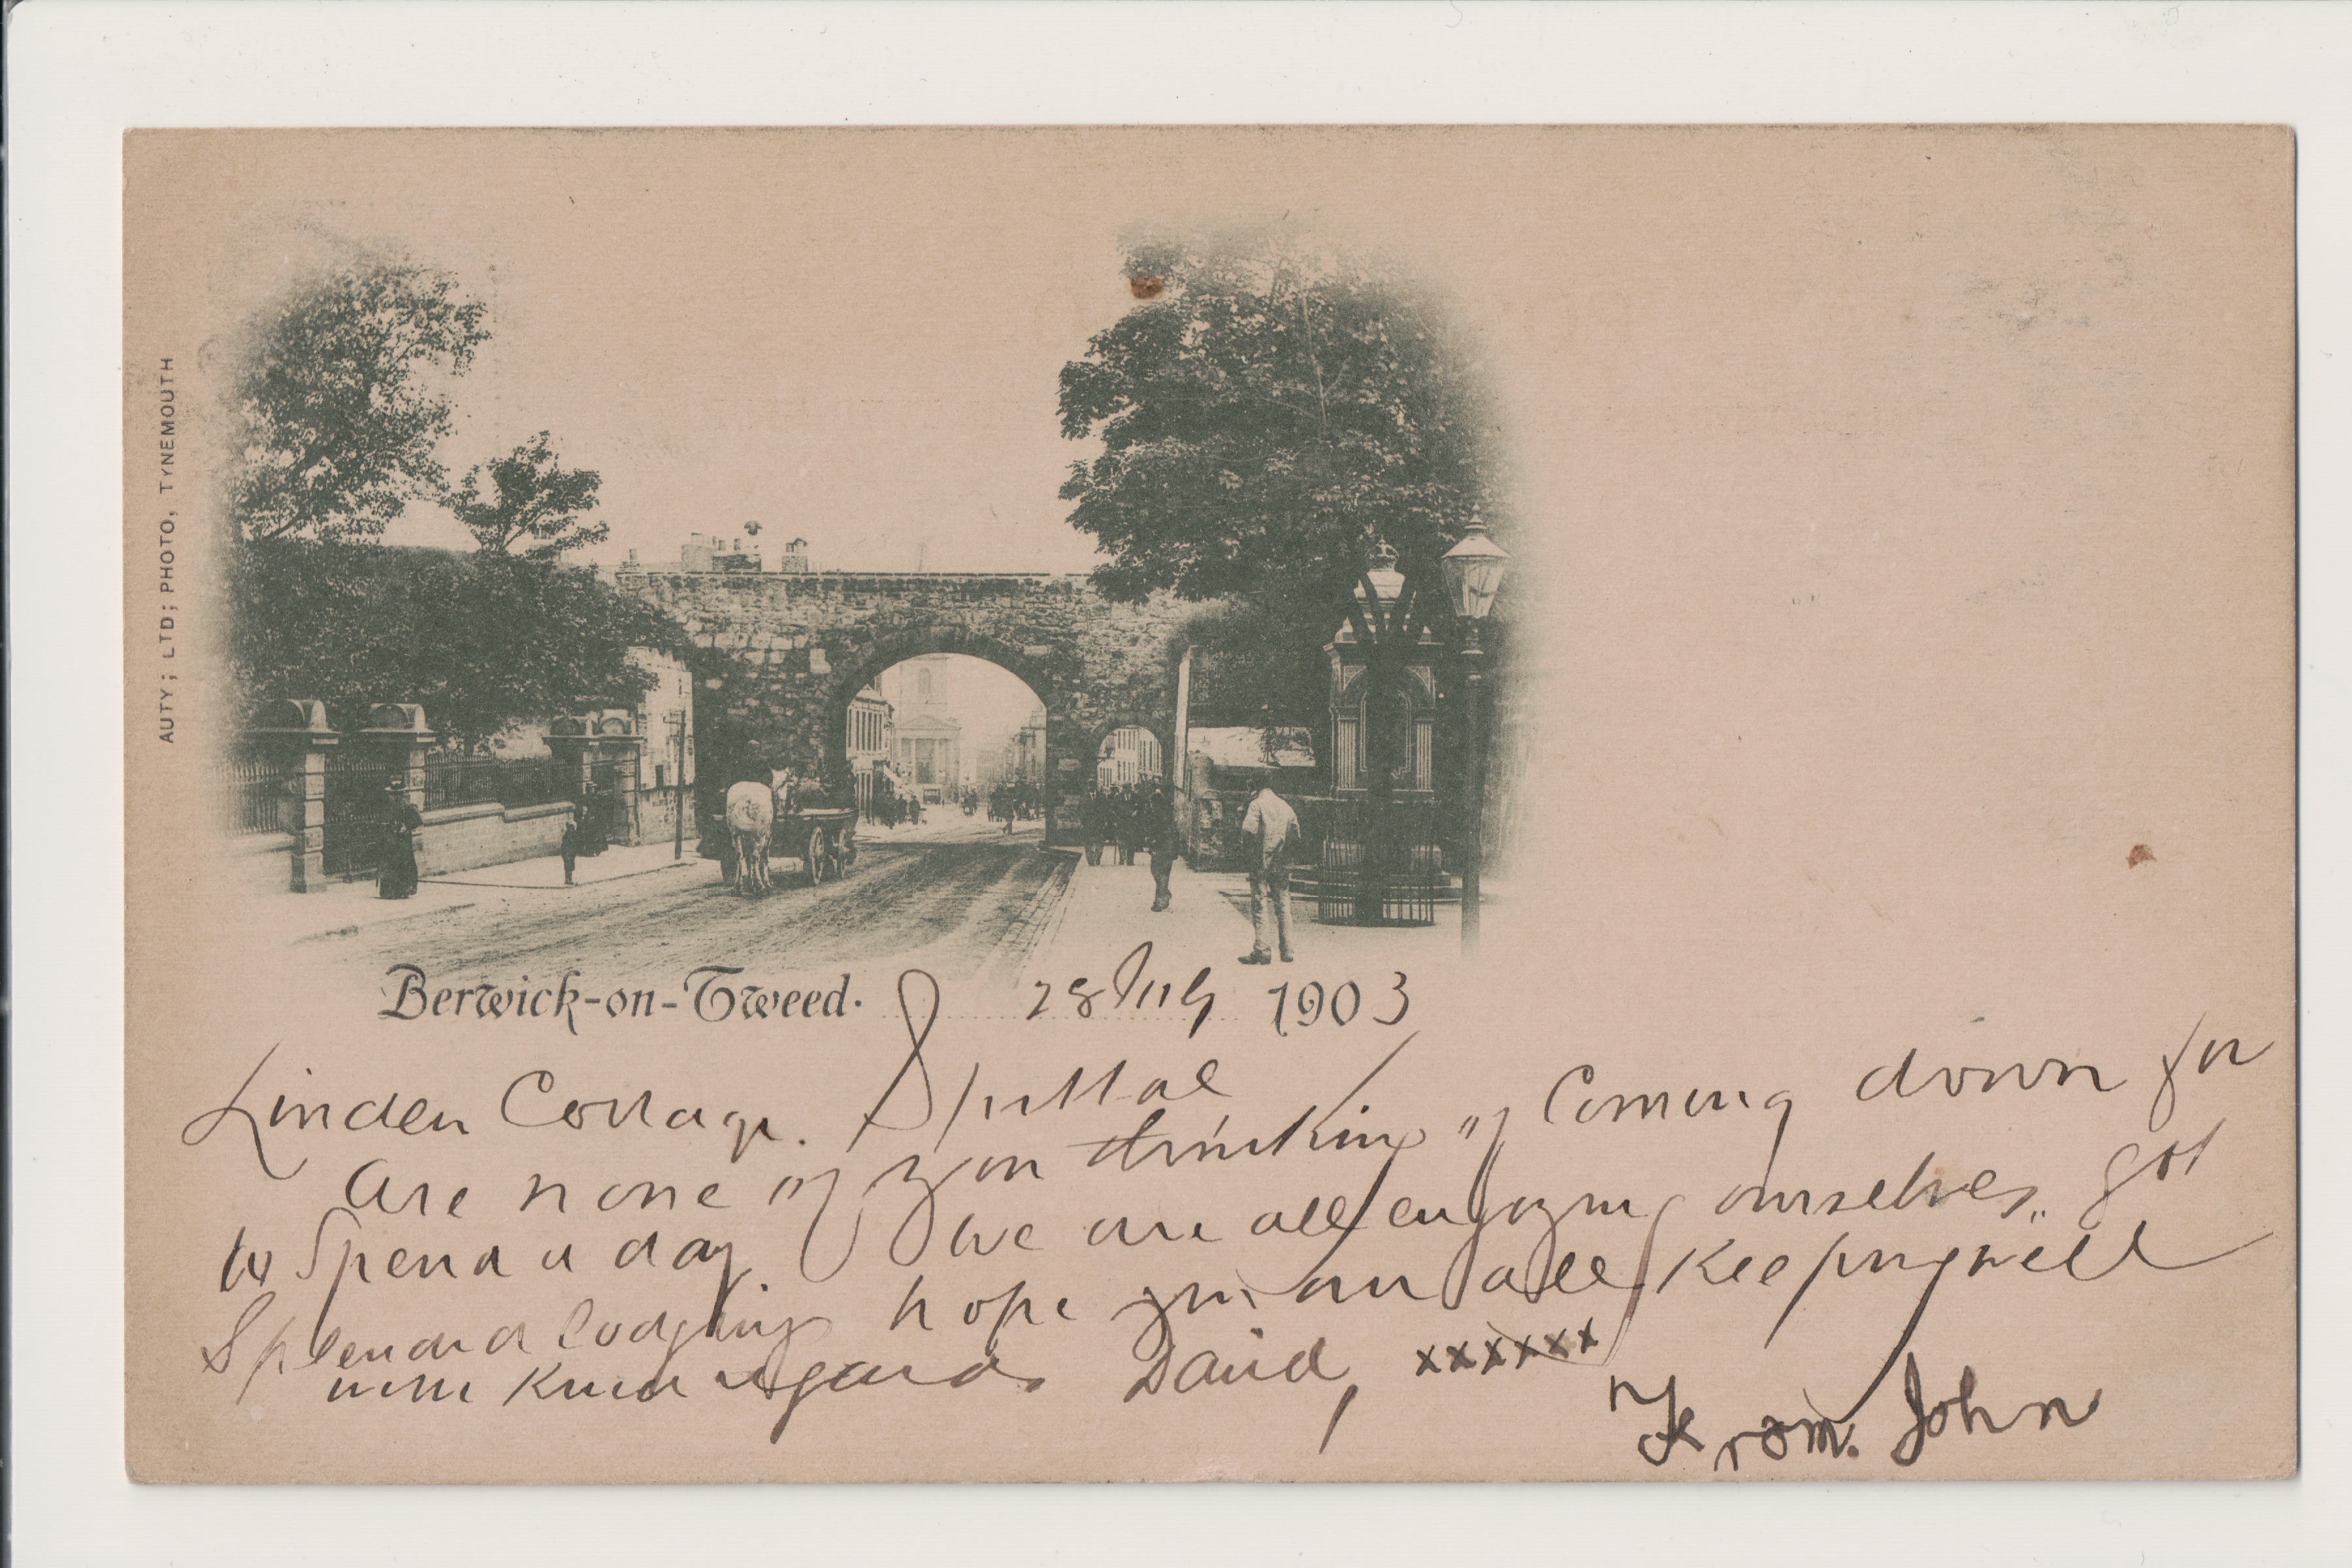 AUTY; LTD; PHOTO, TYNEMOUTH
Berwick-on-Tweed. 28 July 1903
Linden Cottage. Spittal
Are none of you thinking of Coming down for
to Spend a day. We are all enjoying ourselves,, got
Splendid lodgings hope you are all keeping well
with Kind regards David, xxxxxxx
From. John